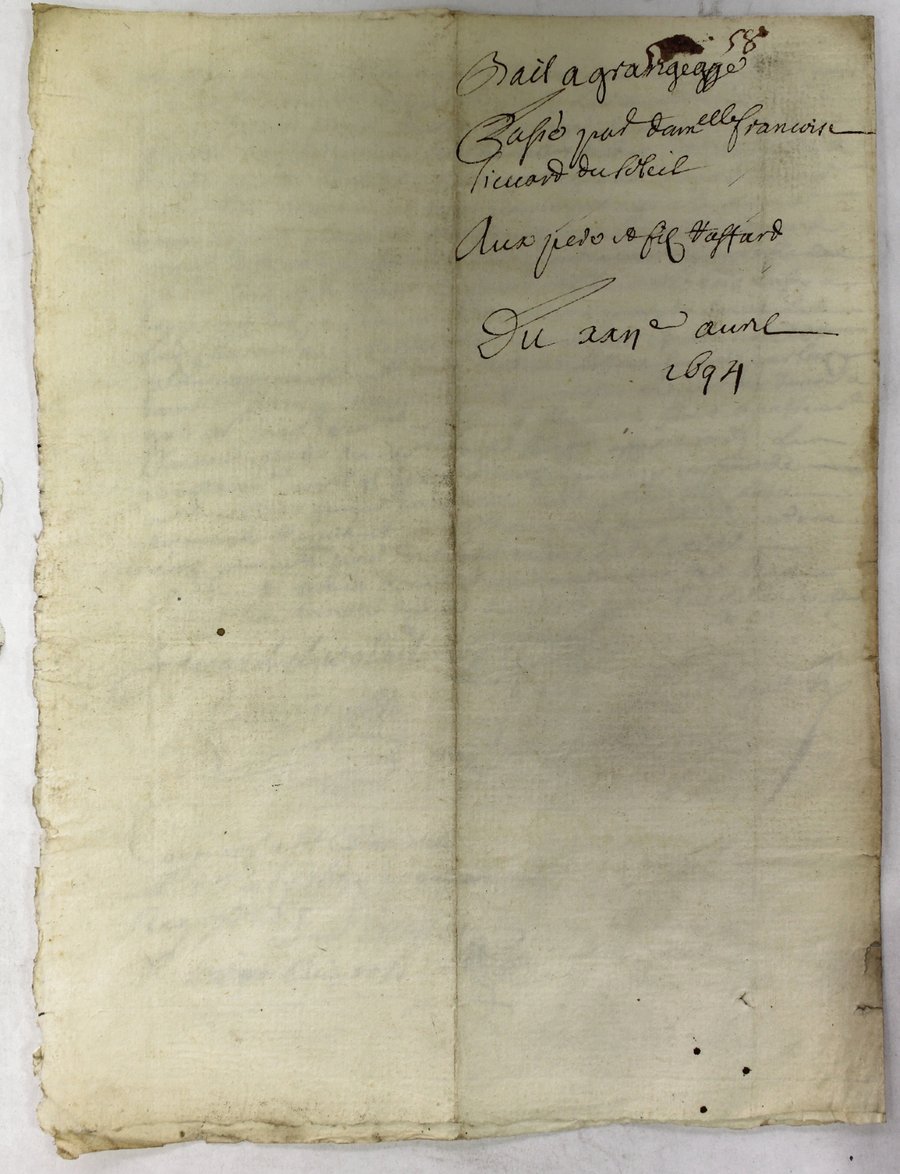 58
Bail a grangeage
Passé par dam^elle francoise
ricuard du soleil
Aux pere et fils taffard
Du xxii^e auril
1694